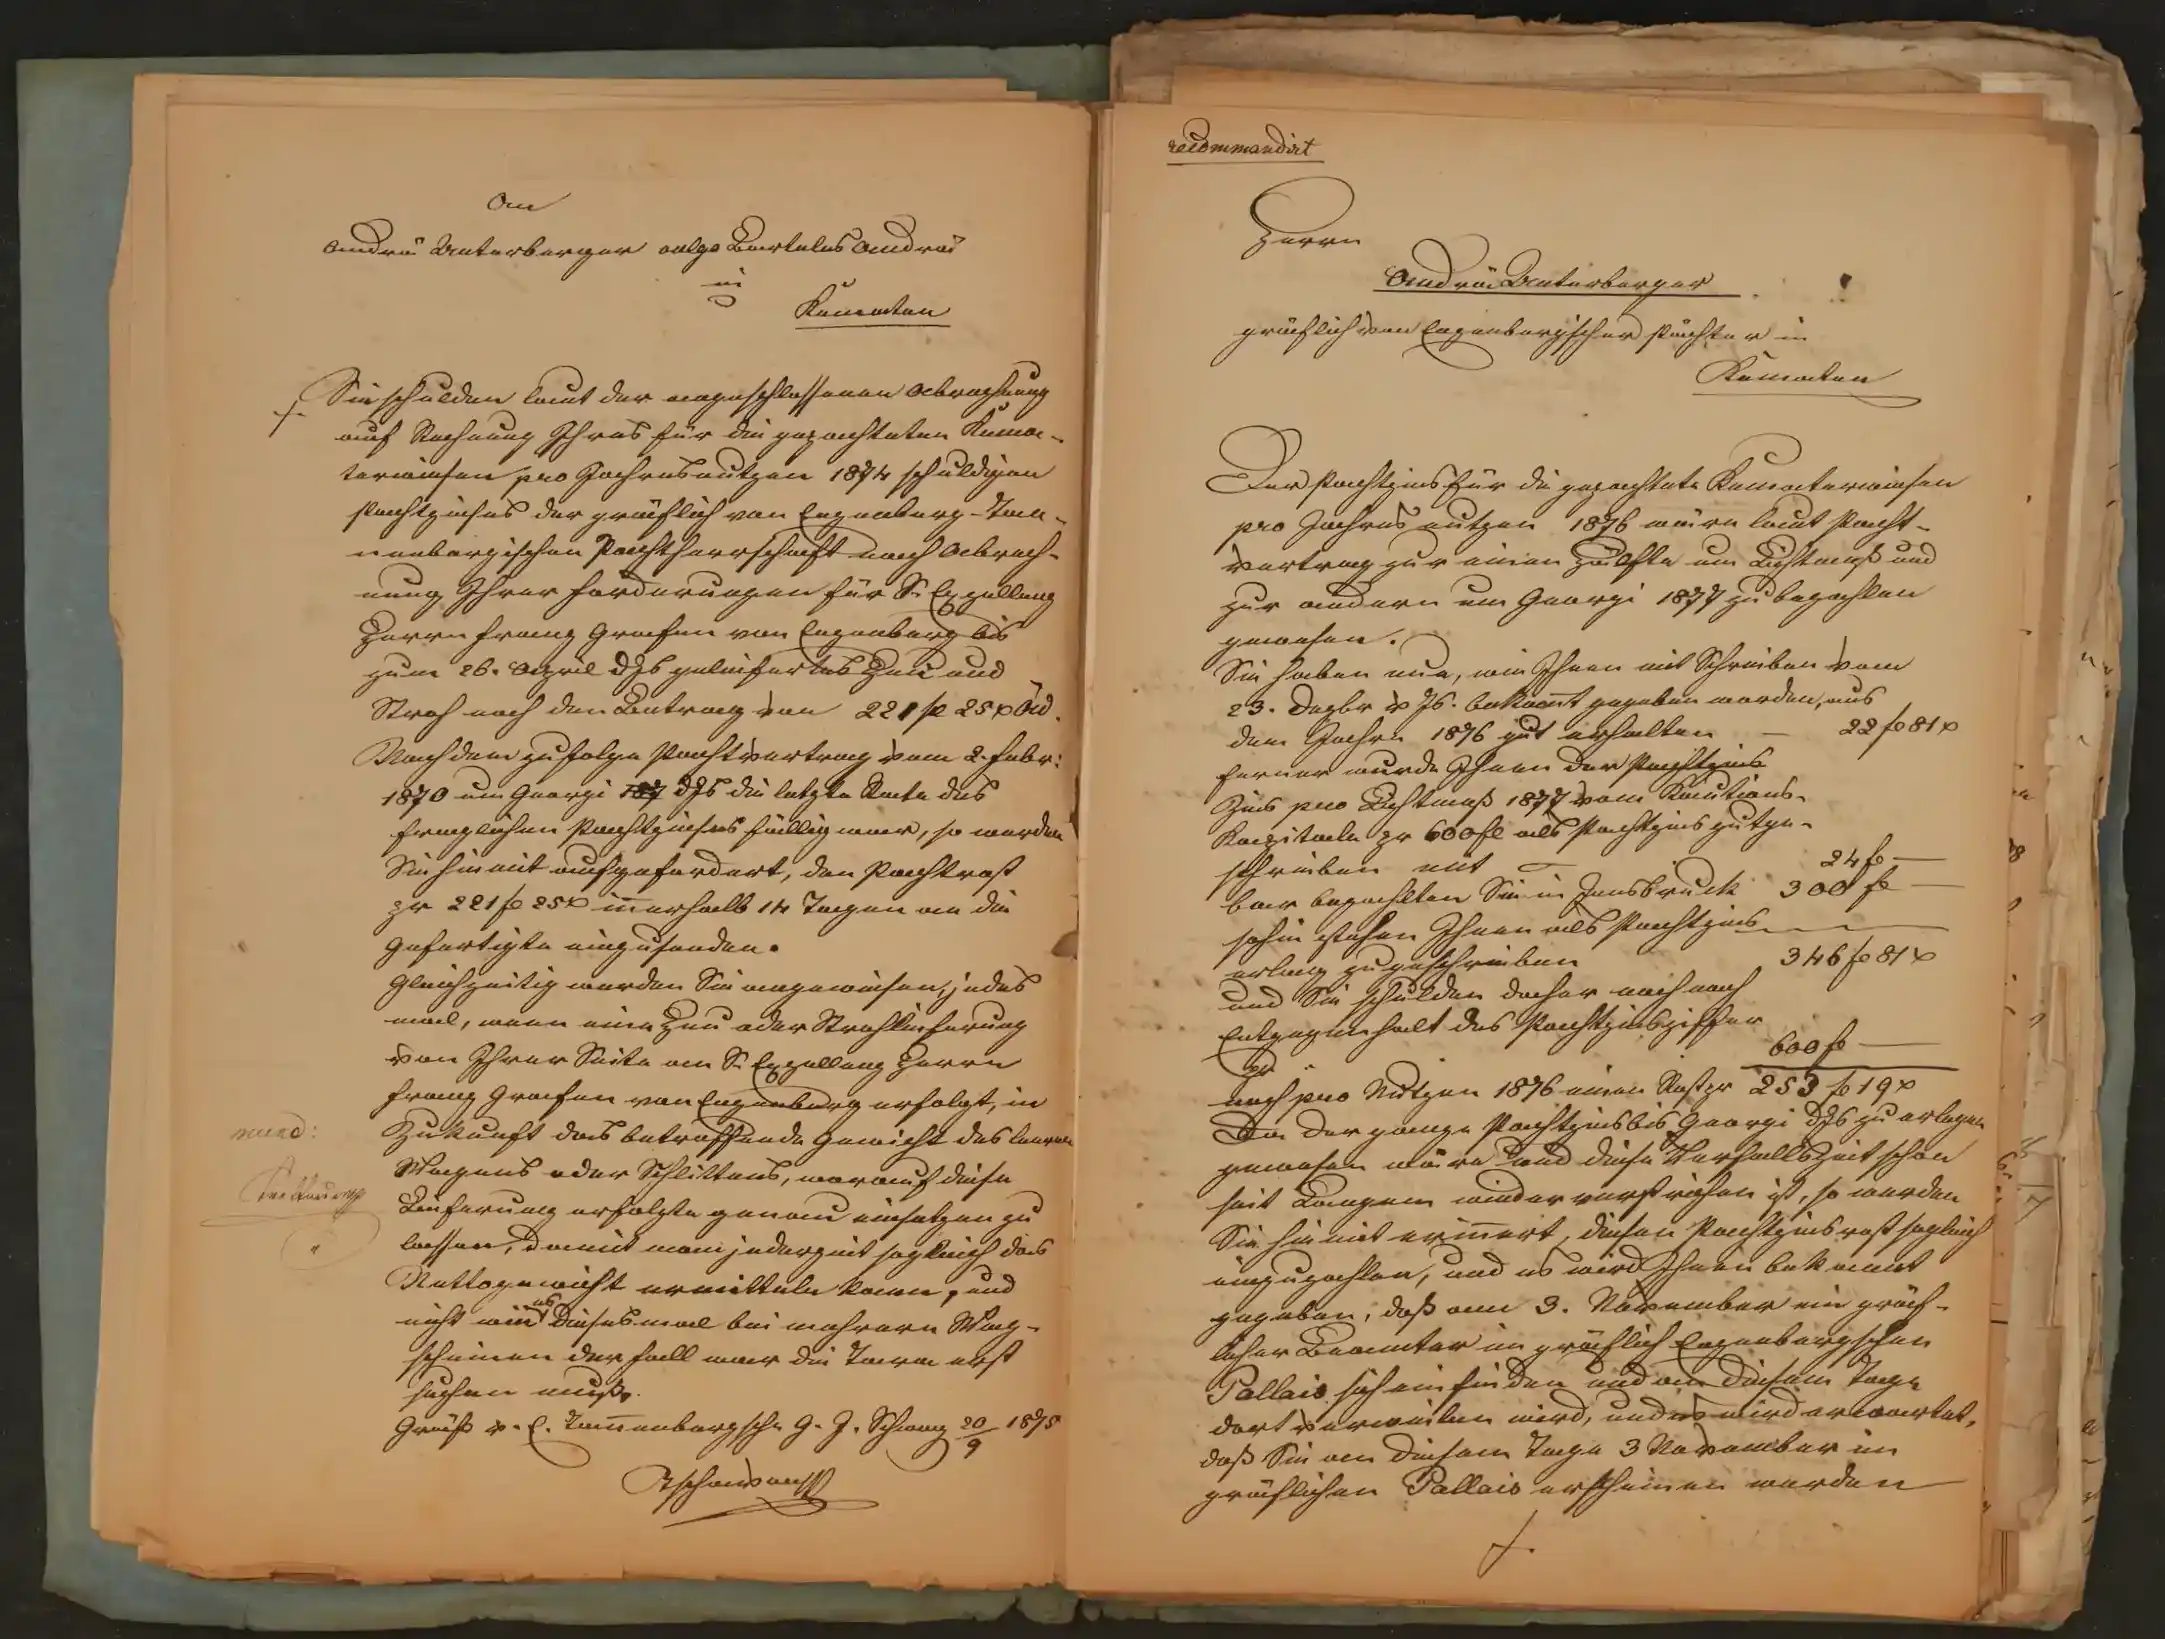 An
Andrä Unterberger vulgo Bartelus Andrä
in
Kematen
Sie schulden laut der angeschlossenen Abrechnung
auf Rechnung Ihres für die gepachteten Kema-
terwiesen pro Jahresnutzen 1874 schuldigen
Pachtzinses der gräflich von Enzenberg-Tan-
nenbergischen Pachtherrschaft nach Abrech-
nung Ihrer Forderungen für Sr Exzellenz
Herrn Franz Grafen von Enzenberg bis
zum 26. April dJs geliefertes Heu und
Stroh noch den Betrag von 221 fl 25 x ÖW.
Nachdem zufolge Pachtvertrag vom 2. Febr:
1870 um Georgi 187 dJs die letzte Rate des
fraglichen Pachtzinses fällig war, so werden
Sie hiemit aufgefordert, den Pachtrest
pr 221 fl 25 x innerhalb 14 Tagen an die
Gefertigte einzusenden.
Gleichzeitig werden Sie angewiesen, jedes
mal, wenn eine Heu oder Strohlieferung
von Ihrer Seite an Sr Exzellenz Herrn
Franz Grafen von Enzenberg erfolgt, in
Zukunft das betreffende Gewicht des leeren
Wagens oder Schlittens, worauf diese
Lieferung erfolgte genau einsetzen zu
lassen, damit man jederzeit sogleich das
Nettogewicht ermitteln kann, und
nicht wie es diesesmal bei mehrern Wag-
scheinen der Fall war die Tara erst
suchen muß.
Gräfl v. E. Tannenbergsche G. J. Schwaz 20/9 1875
mund:
recommandirt
Herrn
Andrä Unterberger
gräflich von Enzenbergischer Pächter in
Kematen
Der Pachtzins für die gepachtete Kematerwiesen
pro Jahresnutzen 1876 wäre laut Pacht-
vertrag zur einen Hälfte um Lichtmeß und
zur andern um Georgi 1877 zu bezahlen
gewesen.
Sie haben nun, wie Ihnen mit Schreiben vom
23. Dezbr v Js. bekannt gegeben worden, aus
dem Jahre 1876 gut erhalten — 22 fl 81 x
ferner wurde Ihnen der Pachtzins
Zins pro Lichtmeß 1877 vom Kautions-
Kapitale pr 600 fl als Pachtzins gutge-
schrieben mit — 24 fl —
bar bezahlten Sie in Innsbruck 300 fl —
sohin stehen Ihnen als Pachtzins
erlag zugeschrieben 346 fl 81 x
und Sie schulden daher nach
Entgegenhalt des Pachtzinsziffer
pr 600 fl —
noch pro Nutzen 1876 einen Rest pr 253 fl 19 x
Da der ganze Pachtzins bis Georgi dJs zu erlegen
gewesen wäre und diese Verfallszeit schon
seit Langem wieder verstrichen ist, so werden
Sie hiemit erinnert, diesen Pachtzinsrest sogleich
einzuzahlen, und es wird Ihnen bekannt
gegeben, daß am 3. November ein gräf-
licher Beamter im gräflich Enzenbergschen
Pallais sich einfinden und an diesem Tage
dort verweilen wird, und es wird erwartet,
daß Sie an diesem Tage 3 November im
gräflichen Pallais erscheinen werden